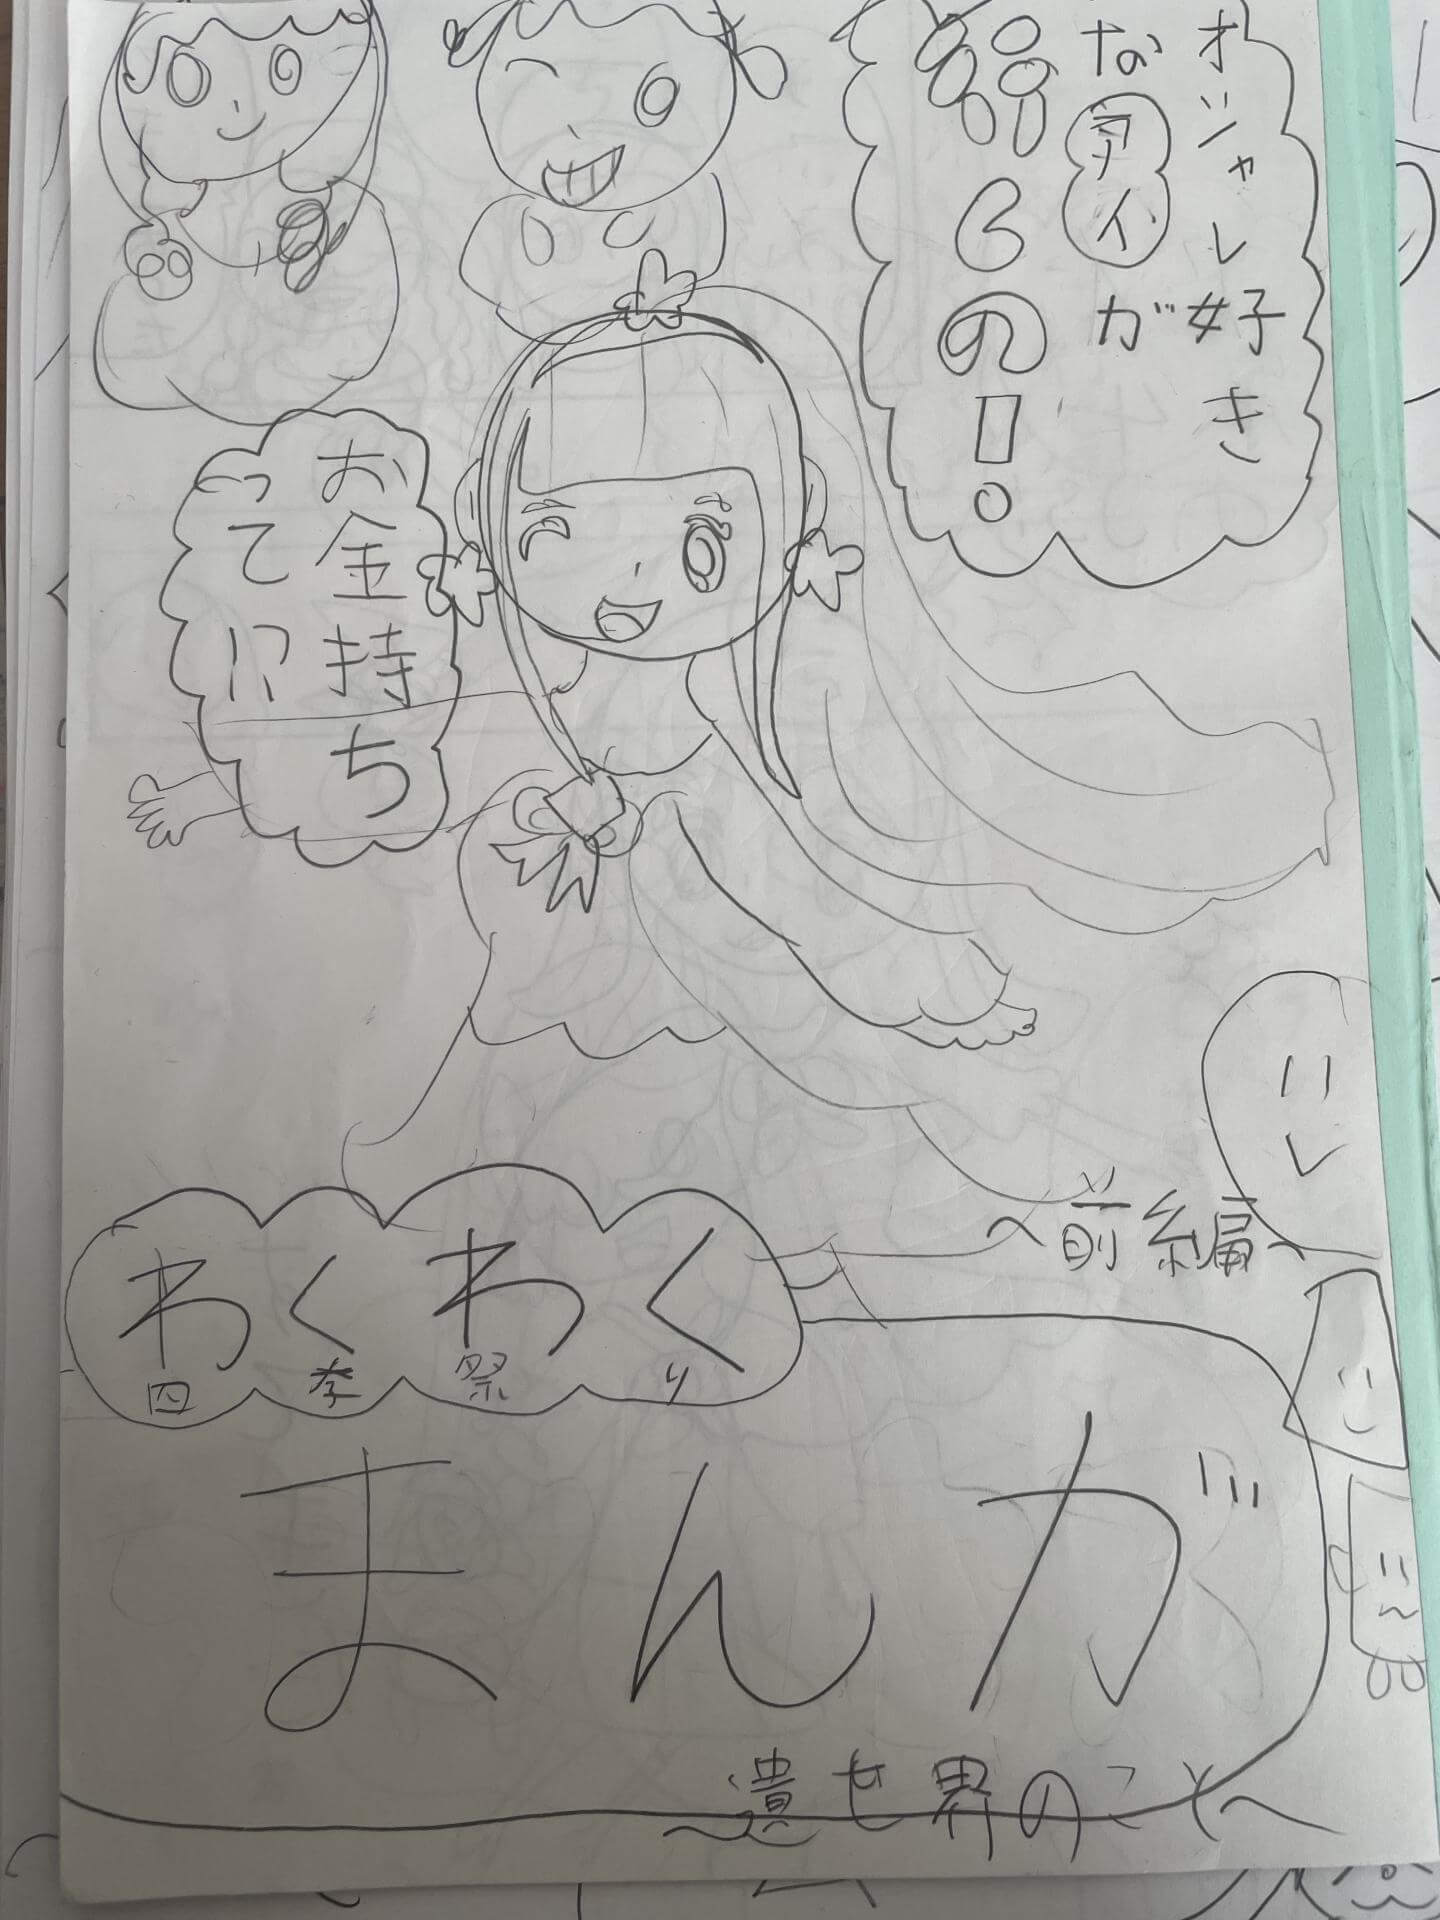 オシャレ好き
なアイが
しの
お金持ち
って!?
～前編～
わくわく
四季祭り
まんが
～遺世界のこと～